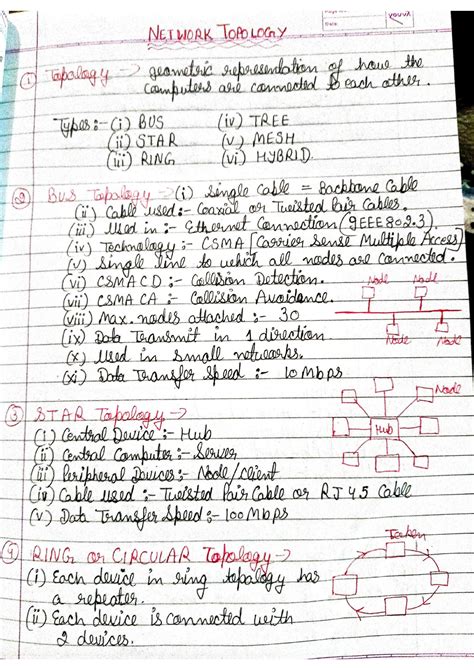 NETWORK TOPOLOGY
① Topology → geometric representation of how the
computers are connected to each other.
Types:- (i) BUS (iv) TREE
(ii) STAR (v) MESH
(iii) RING (vi) HYBRID.
② BUS Topology → (i) Single Cable = Backbone Cable
(ii) Cable used:- Coaxial or Twisted Pair Cables.
(iii) Used in:- Ethernet Connection (IEEE 802.3)
(iv) Technology:- CSMA [Carrier Sense Multiple Access]
(v) Single line to which all nodes are connected.
(vi) CSMA CD:- Collision Detection.
Node Node
(vii) CSMA CA:- Collision Avoidance.
(viii) Max. nodes attached:- 30
(ix) Data Transmit in 1 direction.
Node Node
(x) Used in small networks.
(xi) Data Transfer Speed:- 10 Mbps
Node
③ STAR Topology →
(i) Central Device:- Hub
Hub
(ii) Central Computer:- Server
(iii) Peripheral Devices:- Node/client
(iv) Cable used:- Twisted Pair Cable or RJ 45 Cable
(v) Data Transfer Speed:- 100 Mbps
Token
④ RING or CIRCULAR Topology →
(i) Each device in ring topology has
a repeater.
(ii) Each device is connected with
2 devices.